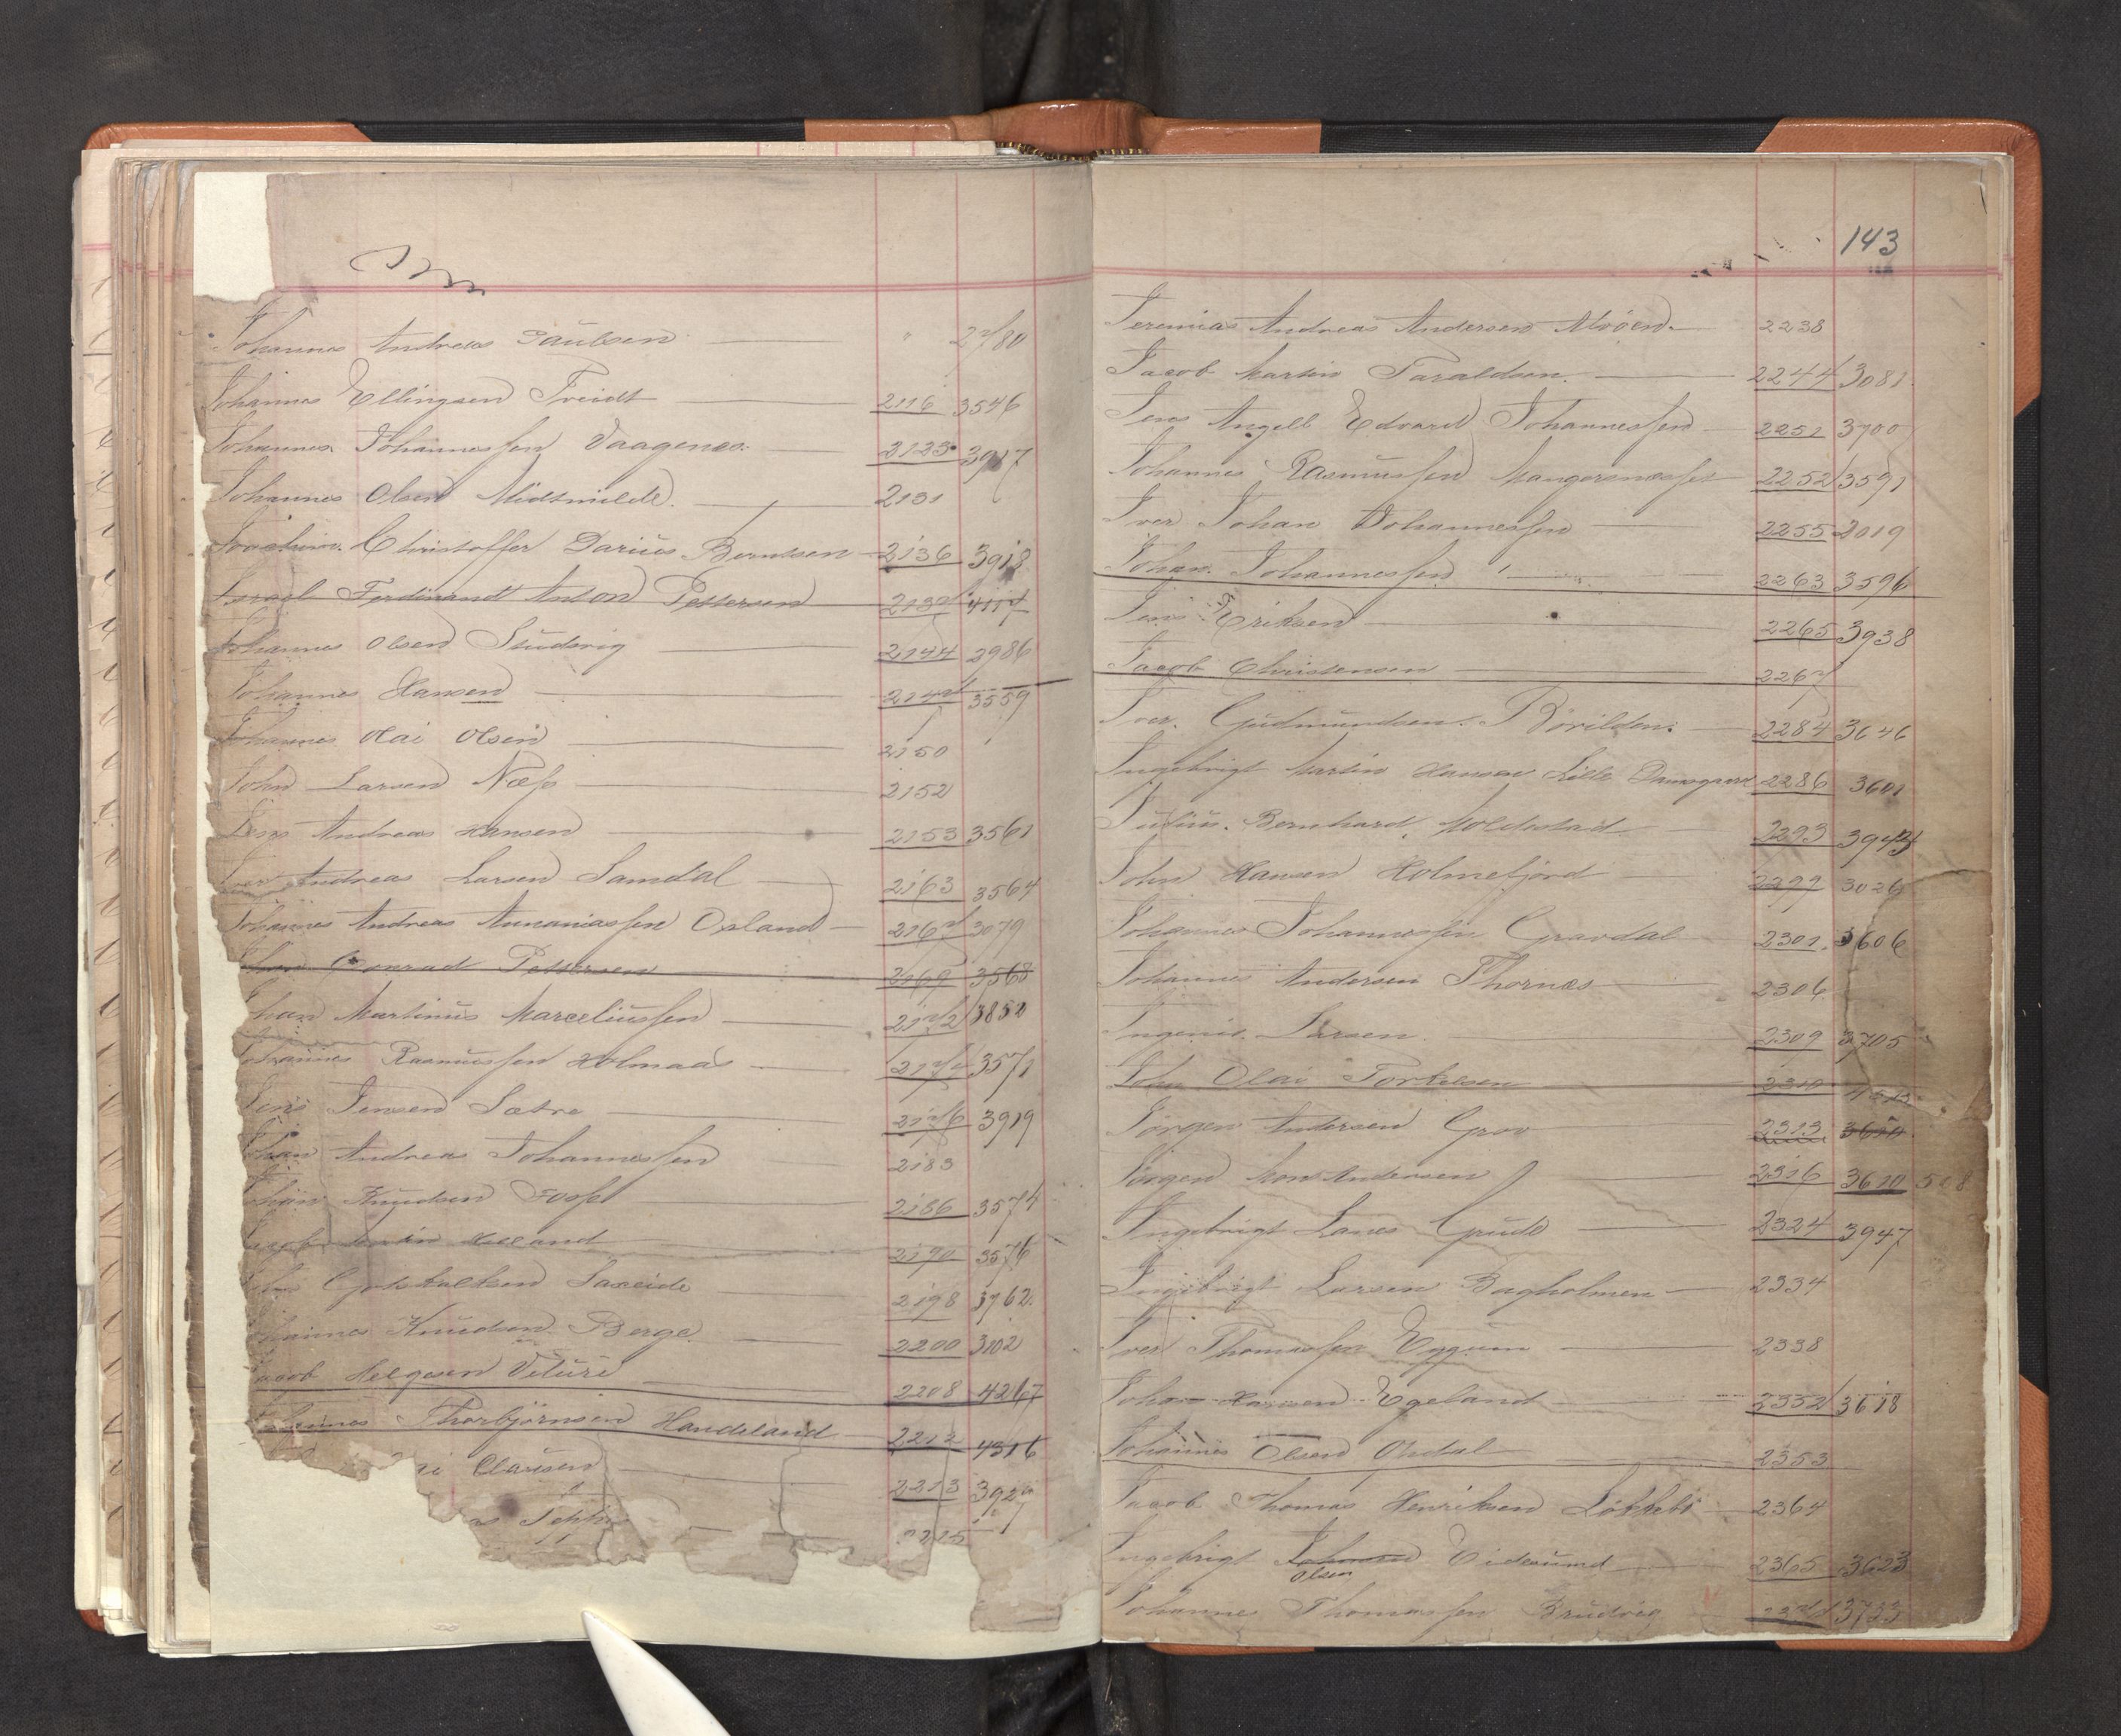 Johannes Andreas Paulsen " 27/80
Johannes Ellingsen Treidt 2116 3546
Johannes Johannessen Vaagenes 2123 3917
Johannes Olsen Midtmilde 2131
Joachim Christoffer Darius Berntsen 2136 3918
Israel Ferdinandt Anton Pettersen 2137 4117
Johannes Olsen Studsvig 2144 2986
Johannes Hansen 2147 3559
Johannes Olai Olsen 2150
John Larsen Næss 2152
Jens Andreas Hansen 2153 3561
Iver Andreas Larsen Samdal 2163 3564
Johannes Andreas Annaniassen Oxland 2167 3079
Johan Conrad Pettersen 2169 3568
Johan Martinus Marceliussen 2172 3852
Johannes Rasmussen Holmaas 2174 3571
Jens Jensen Sætre 2176 3919
Johan Andreas Johannessen 2183
Johan Knudsen Fosse 2186 3574
Jacob Helland 2190 3576
Gotskalksen Saxeide 2198 3762
Johannes Knudsen Berge 2200 3102
Jacob Helgesen Veture 2208 4267
Johannes Thorbjørnsen Handeland 2212 4316
Clausen 2213
2215
143
Jeremias Andreas Andersen Moen 2238
Jacob Martin Taraldsen 2244 3081
Jens Angell Edvard Johannessen 2251 3700
Johannes Rasmussen Mangersnæsset 2252 3591
Iver Johan Johannessen 2255 3019
Johan Johannessen 2263 3596
Jens Eriksen 2265 3938
Jacob Christensen 2267
Iver Gudmundsen Børilden 2284 3646
Ingebrigt Martin Hansen Lille Damsgaard 2286 3601
Julius Bernhard Moldestad 2293 3943
John Hansen Holmefjord 2299 3026
Johannes Johannessen Gravdal 2301 3606
Johannes Andersen Thornæs 2306
Larsen 2309 3705
John Olai Torkelsen 2310
Jørgen Andersen Grov 2313 3610
Jørgen Mons Andersen 2316 3610
Ingebrigt Larsen Grude 2324 3947
Ingebrigt Larsen Bagholmen 2334
Iver Thomassen Eggum 2338
Johan Hansen Egeland 2352 3618
Johannes Olsen Opdal 2353
Jacob Thomas Henriksen Løkkebø 2364
Ingebrigt Johnsen Eidesund 2365 3623
Olsen
Johannes Thomassen Brudvig 3733